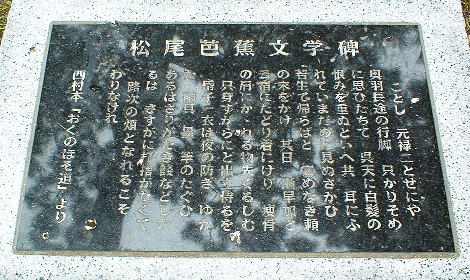 松尾芭蕉文学碑
ことし 元禄二とせにや
奥羽長途の行脚 只かりそめ
に思ひたちて 呉天に白髪の
恨みを重ぬといへ共 耳にふ
れていまだめに見ぬさかひ
若生て帰らばと 定めなき頼
の末をかけ 其日 漸早加と
云宿にたどり着にけり 痩骨
の肩にかゝれる物先くるしむ
只身すがらにと出立侍るを
子一衣は夜の防ぎ ゆか
た 雨具 墨 筆のたぐひ
あるはさりがたき餞などした
るは さすがに打捨がたくて
路次の煩となれるこそ
わりなけれ
西村本「おくのほそ道」より